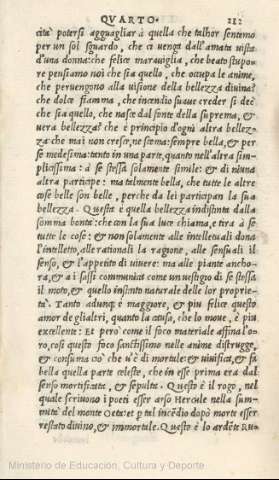 QVARTO. 212
cità potersi agguagliar à quella che talhor sentimo
per un sol sguardo, che ci uenga dall'amata uista
d'una donna: che felice marauiglia, che beato stupo=
re pensiamo noi che sia quello, che occupa le anime,
che peruengono alla uisione della bellezza diuina?
che dolce fiamma, che incendio suaue creder si dee
che sia quello, che nasce dal fonte della suprema, &
uera bellezza? che è principio d'ogni altra bellez=
za che mai non cresce, ne scema: sempre bella, & per
se medesima: tanto in una parte, quanto nell'altra sim=
plicissima: à se stessa solamente simile: & di niuna
altra participe: ma talmente bella, che tutte le altre
cose belle son belle, perche da lei participan la sua
bellezza. Questa è quella bellezza indistinta dalla
somma bontà: che con la sua luce chiama, e tira à se
tutte le cose: & non solamente alle intellettuali dona
l'intelletto, alle rationali la ragione, alle sensuali il
senso, & l'appetito di uiuere: ma alle piante ancho=
ra, & a i sassi communica come un uestigio di se stessa
il moto, & quello instinto naturale delle lor proprie=
tà. Tanto adunq; è maggiore, & piu felice questo
amor de gli altri, quanto la causa, che lo moue, è piu
excellente: Et però come il foco materiale affina l'o=
ro, cosi questo foco sanctissimo nelle anime distrugge,
& consuma ciò che u'è di mortale: & uiuifica, & fà
bella quella parte celeste, che in esse prima era dal
senso mortificata, & sepulta. Questo è il rogo, nel
quale scriuono i poeti esser arso Hercule nella sum=
mità del monte Oeta: & p tal incēdio dopo morte esser
restato diuino, & immortale. Questo è lo ardēte Ru=
Ministerio de Educación, Cultura y Deporte